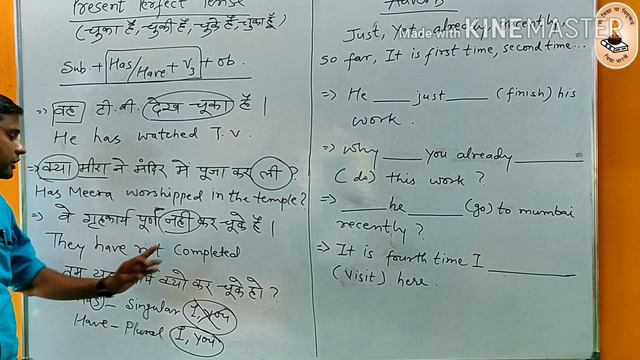 Present Perfect Tense
(चुका है, चुकी है, चुके है, चुका हूँ)
Sub. + Has/Have + V3 + ob.
⇒ वह टी.वी. देख चूका है।
He has watched T.V.
⇒ क्या मीरा ने मंदिर मे पूजा कर ली ?
Has Meera worshipped in the temple?
⇒ वे गृहकार्य पूर्ण नही कर चूके है।
They have not completed
क्यो कर चूके हो ?
Singular I, you
Have – Plural I, you
Just, Yet, already, recently,
so far, It is first time, second time...
⇒ He ___ just ___ (finish) his
work.
⇒ why ___ you already ___
(do) this work ?
⇒ ___ he ___ (go) to mumbai
recently ?
⇒ It is fourth time I ___
(visit) here.
Made with KINEMASTER